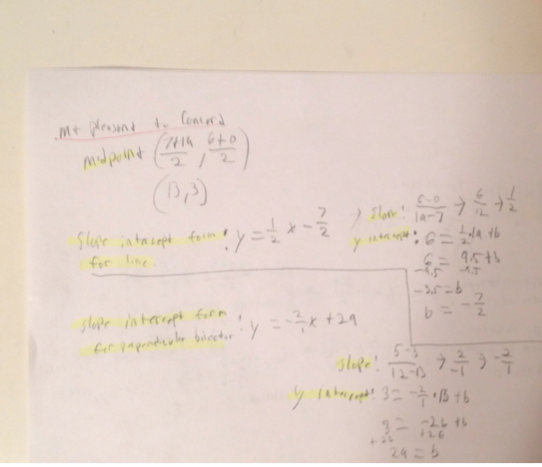 Mt pleasant to Concord
midpoint (7+19/2, 6+0/2)
(13,3)
Slope intercept form for line: y = 1/2 x - 7/2
→ slope: 6-0/19-7 → 6/12 → 1/2
y intercept: 6 = 1/2·19 + b
6 = 9.5 + b
-9.5 -9.5
-3.5 = b
b = -7/2
Slope intercept form for perpendicular bisector: y = -2/1 x + 29
slope: 5-3/12-13 → 2/-1 → -2/1
y intercept: 3 = -2/1·13 + b
3 = -26 + b
+26 +26
29 = b